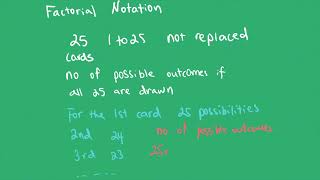 Factorial Notation
25 1 to 25 not replaced
cards
no of possible outcomes if
all 25 are drawn
For the 1st card 25 possibilities
2nd 24 no of possible outcomes
3rd 23 25
... ...